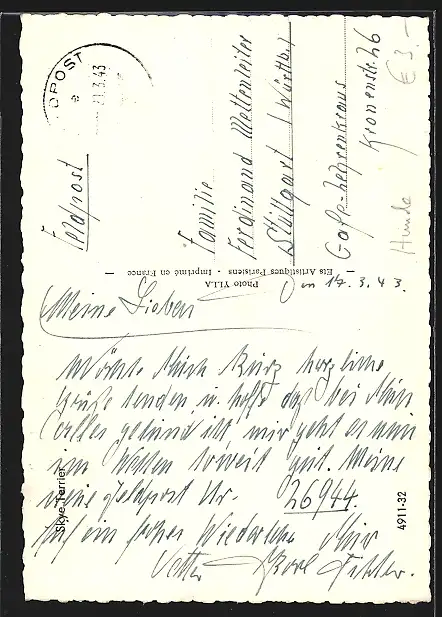 Feldpost
DPOST
21.3.43
Familie
Ferdinand Mettenleiter
Stuttgart (Württb.)
Kronenstr. 26
€ 3.-
Hunde
Photo YLLA
Ets Artistiques Parisiens · Imprimé en France
Den 17.3.43.
Meine Lieben
Möchte Euch kurz herzliche
Grüße senden u. hoffe das bei
alles gesund ist, mir geht es
im Westen soweit gut. Meine
neue Feldpost Nr. 26944.
Auf ein frohes Wiedersehn
Vetter Karl
Skye Terrier
4911-32